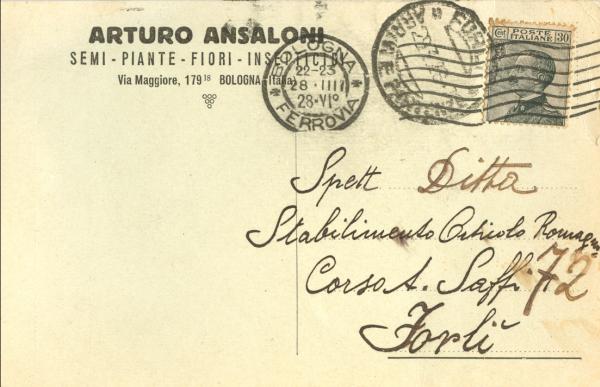 ARTURO ANSALONI
SEMI - PIANTE - FIORI - INSETTICIDI
Via Maggiore, 179 18 BOLOGNA (Italia)
* BOLOGNA *
22-23
28 · III
28·VIº
FERROVIA
POSTE
ITALIANE
Cent 30
Spett Ditta
Stabilimento Orticolo Romagn
Corso A. Saffi 72
Forlì